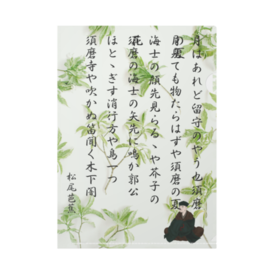 月はあれど留守のやう也須磨の夏
月見ても物たらはずや須磨の夏
海士の顔先見らるゝや芥子の花
須磨の海士の矢先に鳴か郭公
ほとゝぎす消行方や島一つ
須磨寺や吹かぬ笛聞く木下闇
松尾芭蕉